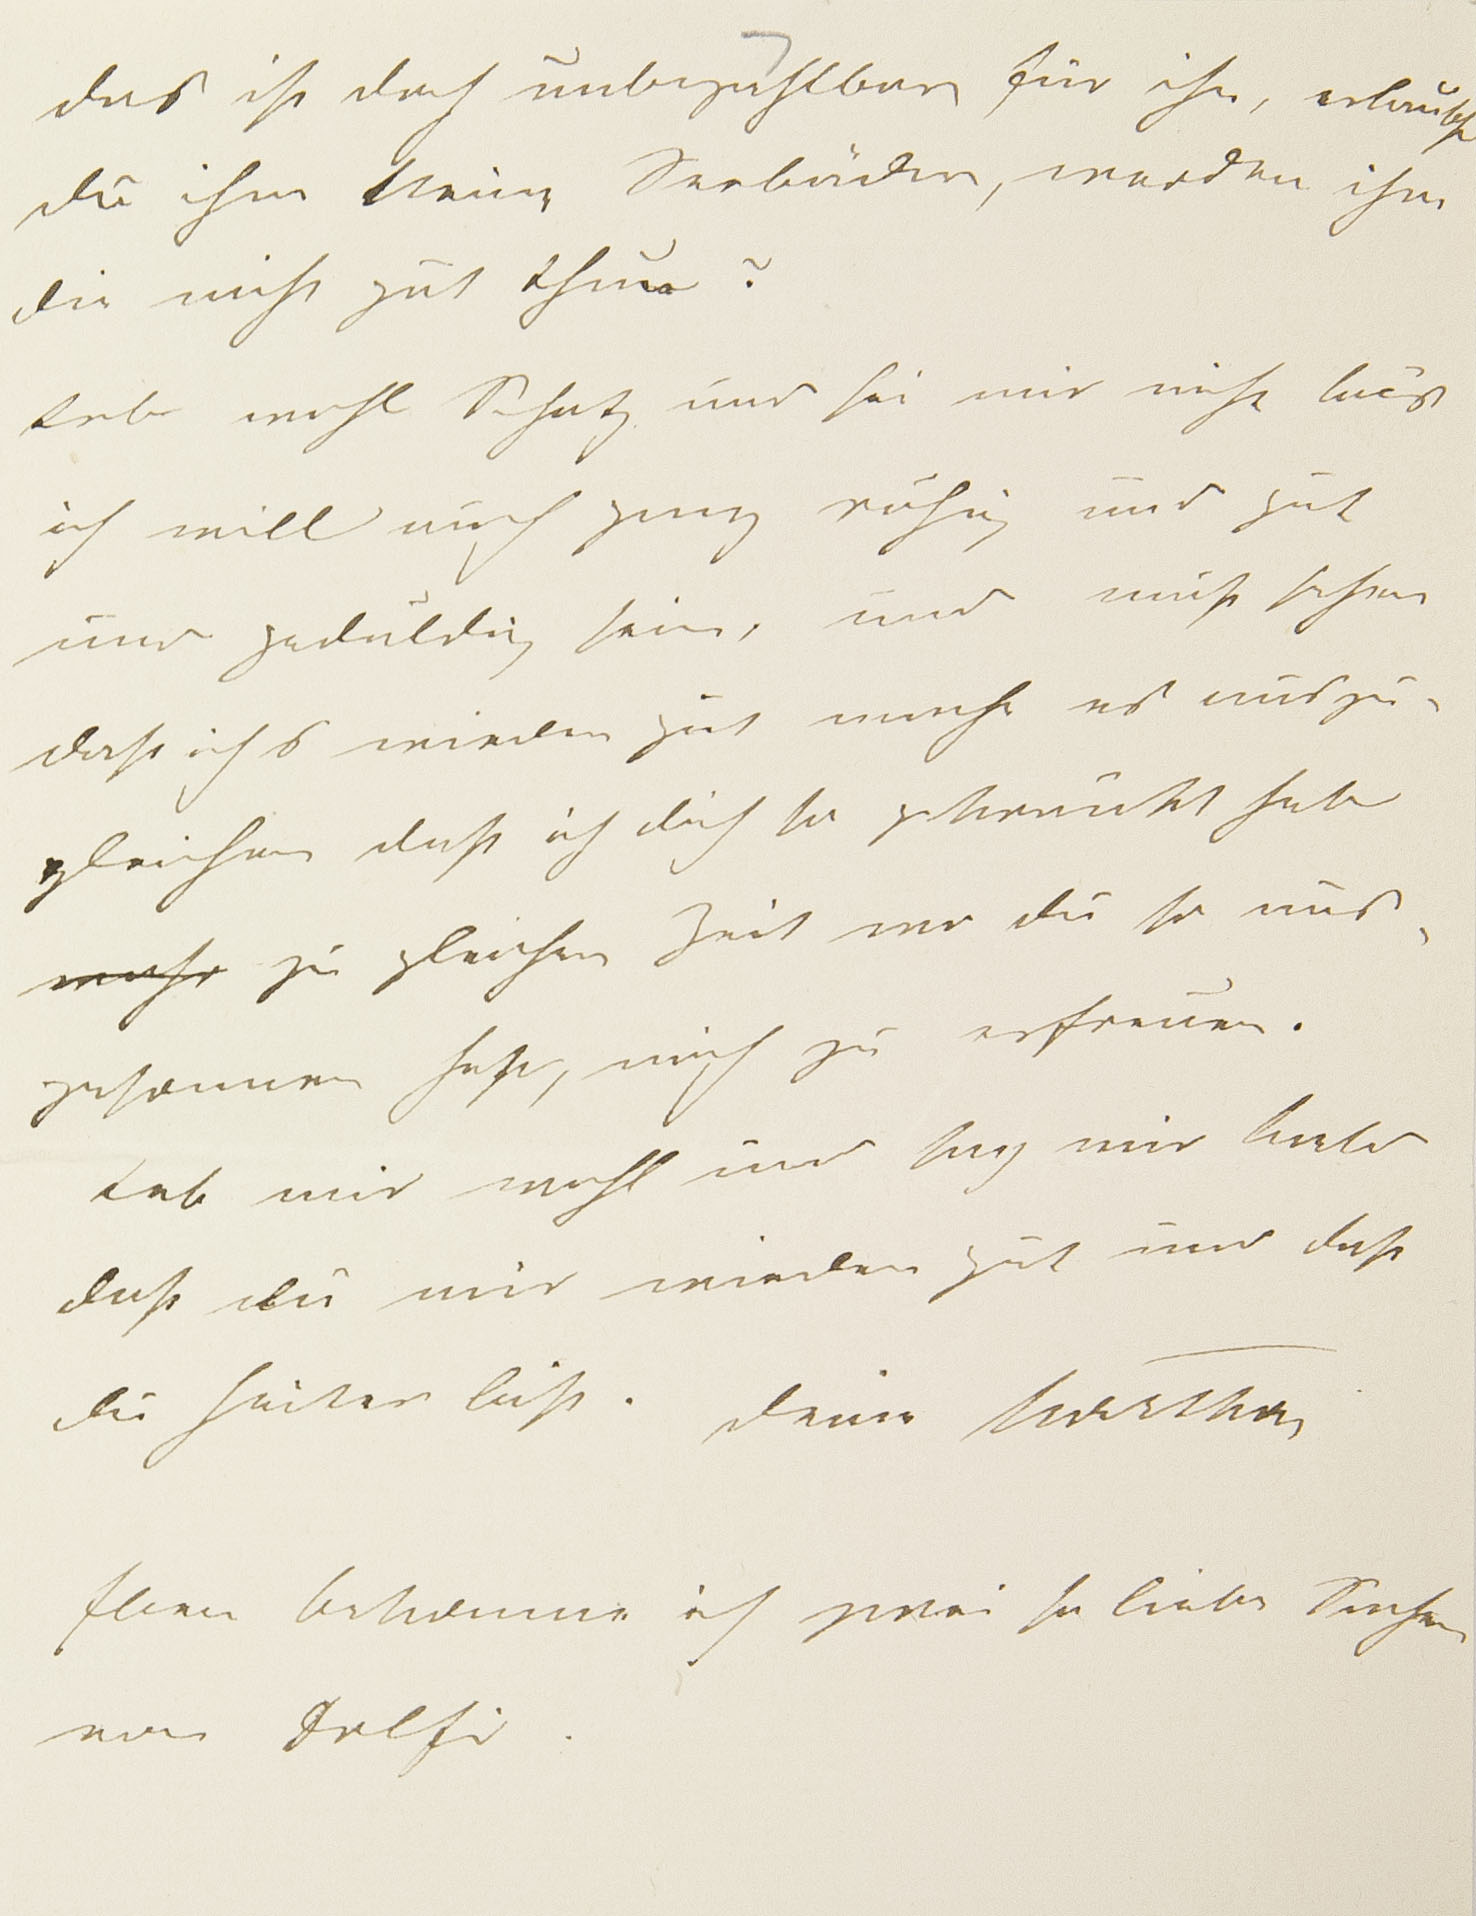 das ist doch unbezahlbar für ihn, erlaubst
du ihm keine Seebäder, werden ihm
die nicht gut thun?
Leb wohl Schatz und sei mir nicht bös
ich will auch ganz ruhig und gut
und geduldig sein, und muß sehen
daß ichs wieder gut mache es auszu-
gleichen daß ich dich so gekränkt habe
zu gleicher Zeit wo du so aus-
gesonnen hast, mich zu erfreuen.
Leb mir wohl und sag mir bald
daß du mir wieder gut und daß
du heiter bist. deine
Eben bekomme ich zwei so liebe Sachen
von